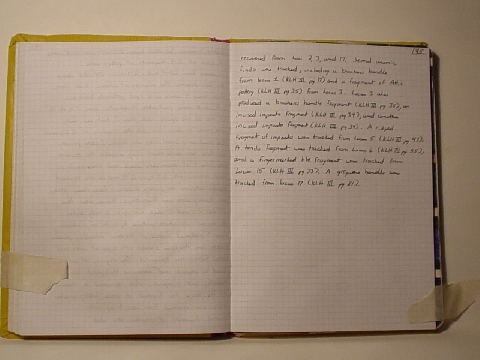 195
recovered from loci 2, 7, and 17. Several interesting
finds were tracked, including a handle
from locus 1 (KLH III pg 17) and a fragment of
pottery (KLH III pg 25) from locus 3. Locus 3 also
produced a handle fragment (KLH III pg 35), an
incised impasto fragment (KLH III pg 39), and another
incised impasto fragment (KLH III pg 39). A ridged
fragment of impasto was tracked from locus 5 (KLH III pg 43).
A fragment was tracked from locus 6 (KLH III pg 55),
and a finger marked tile fragment was tracked from
locus 15 (KLH III pg 73). A handle was
tracked from locus 17 (KLH III pg 81).